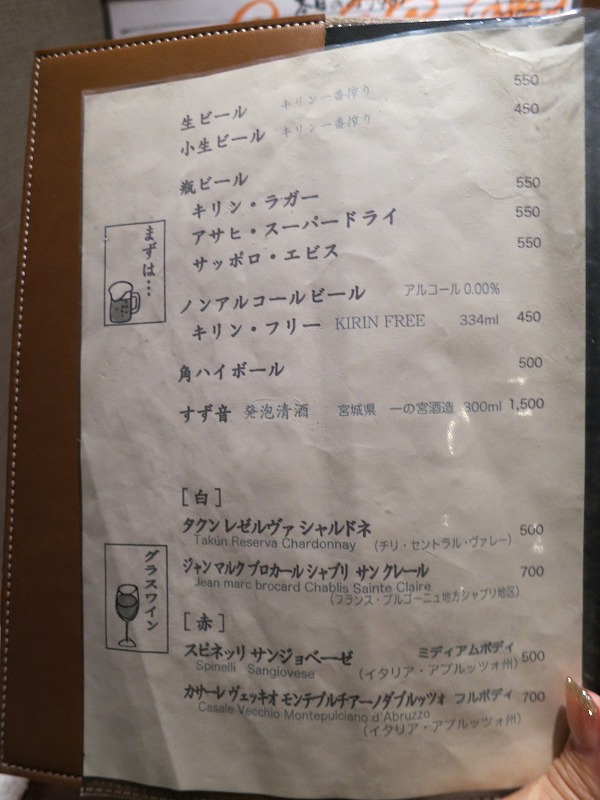 生ビール キリン一番搾り 550
小生ビール キリン一番搾り 450
瓶ビール
キリン・ラガー 550
アサヒ・スーパードライ 550
サッポロ・エビス 550
まずは…
ノンアルコールビール アルコール 0.00%
キリン・フリー KIRIN FREE 334ml 450
角ハイボール 500
すず音 発泡清酒 宮城県 一の宮酒造 300ml 1,500
グラスワイン
[白]
タクン レゼルヴァ シャルドネ 500
Takun Reserva Chardonnay (チリ・セントラル・ヴァレー)
ジャン マルク ブロカール シャブリ サン クレール 700
Jean marc brocard Chablis Sainte Claire
(フランス・ブルゴーニュ地方シャブリ地区)
[赤]
スピネッリ サンジョベーゼ ミディアムボディ 500
Spinelli Sangiovese (イタリア・アブルッツォ州)
カサーレ ヴェッキオ モンテプルチアーノダブルッツォ フルボディ 700
Casale Vecchio Montepulciano d'Abruzzo
(イタリア・アブルッツォ州)